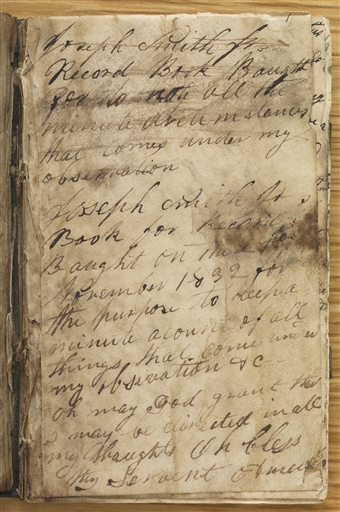 Joseph Smith Jrs
Record Book Baught
for to note all the
minute circumstances
that comes under my
observation
Joseph Smith Jrs
Book for Record
Baught on the
November 1832 for
the purpose to keep a
minute acount of all
things that come under
my obse[r]vation &c
oh may God grant that
I may be directed in all
my thaughts Oh bless
thy Servent Amen